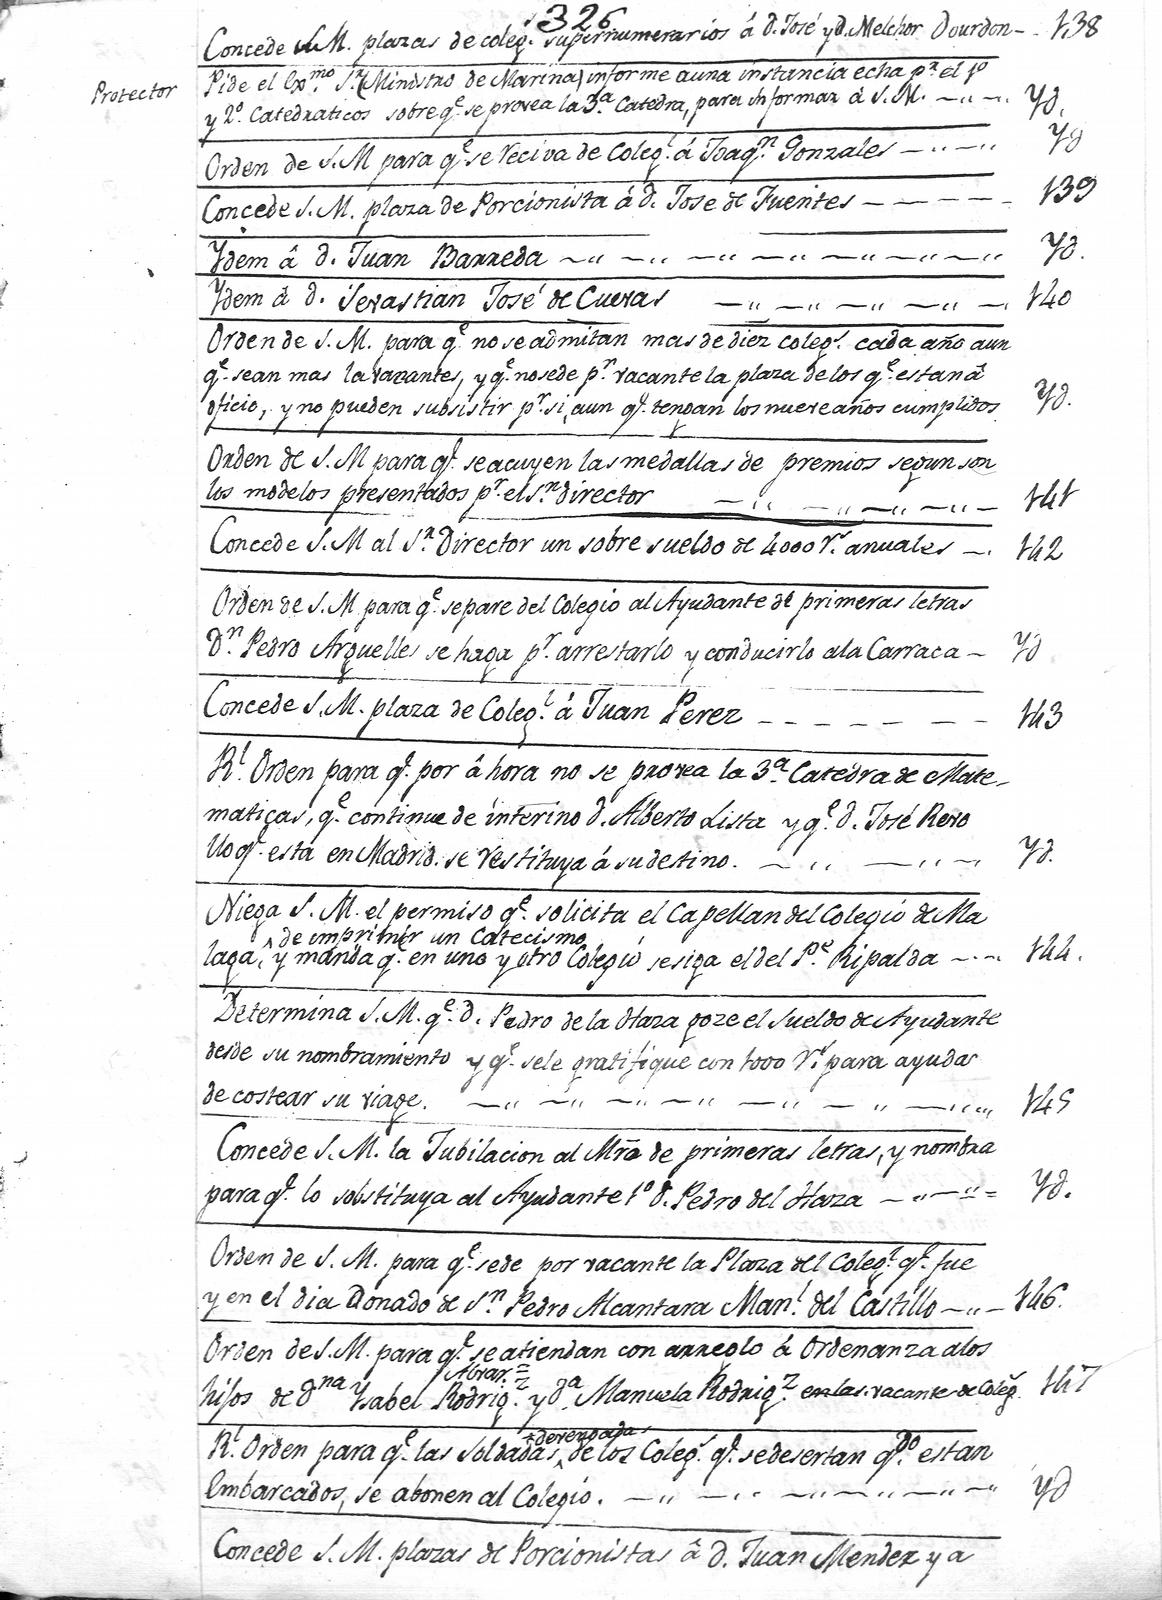 326
Concede S.M. plazas de coleg.s supernumerarios á d. José y d. Melchor Dourdon - - 138
Protector
Pide el Exmo. Sr. (Ministro de Marina) informe a una instancia echa pr. el 1º
y 2º. Catedraticos sobre qe. se provea la 3ª Catedra, para informar á S.M. - - Yd.
Orden de S.M para qe. se reciva de Colegl. á Joaqn. Gonzales - - Yd
Concede S.M. plaza de Porcionista á d. Jose de Fuentes - - - - - 139
Ydem á d. Juan Barreda - - - - - - - - Yd.
Ydem á d. Sevastian José de Cuevas - - - - - 140
Orden de S.M. para qe. no se admitan mas de diez colegs. cada año aun
qe. sean mas las vacantes, y qe. no se de pr. vacante la plaza de los qe. estan á
oficio, y no pueden subsistir pr. si, aun qe. tengan los nueve años cumplidos Yd.
Orden de S.M para qe. se acuñen las medallas de premios segun son
los modelos presentados pr. el Sr. director - - - - 141
Concede S.M al Sr. Director un sobre sueldo de 4000 rs. anuales - 142
Orden de S.M para qe. separe del Colegio al Ayudante de primeras letras
Dn. Pedro Arguelles se haga pr. arrestarlo y conducirlo ala Carraca - Yd
Concede S.M. plaza de Colegl. á Juan Perez - - - - - - 143
Rl. Orden para qe. por á hora no se provea la 3ª. Catedra de Mate-
maticas, qe. continue de interino d. Alberto Lista y qe. d. José Rero
llo qe. está en Madrid. se restituya á su destino. - - - - Yd.
Niega S.M. el permiso qe. solicita el Capellan del Colegio de Ma
de imprimir un Catecismo
laga, y manda qe. en uno y otro Colegio se siga el del Pe. Ripalda - - 144.
Determina S.M. qe. d. Pedro de la Haza goze el sueldo de Ayudante
desde su nombramiento y qe. se le gratifique con 1000 rs. para ayuda
de costear su viage. - - - - - - - 145
Concede S.M. la Jubilacion al Mro de primeras letras, y nombra
para qe. lo substituya al Ayudante 1º d. Pedro del Haza - - Yd.
Orden de S.M. para qe. se de por vacante la Plaza del Colegl. qe. fue
y en el dia Donado de Sn. Pedro Alcantara Manl. del Castillo - - 146.
Orden de S.M. para qe. se atiendan con arreglo á Ordenanza alos
Alvarz.
hijos de Dna Ysabel Rodrigz. y da. Manuela Rodrigz. en las vacante de Coleg. 147
devengadas
Rl. Orden para qe. las soldadas, de los Colegs. qe. se desertan qdo. estan
Embarcados, se abonen al Colegio. - - - - - Yd
Concede S.M. plazas de Porcionistas á d. Juan Mendez y a